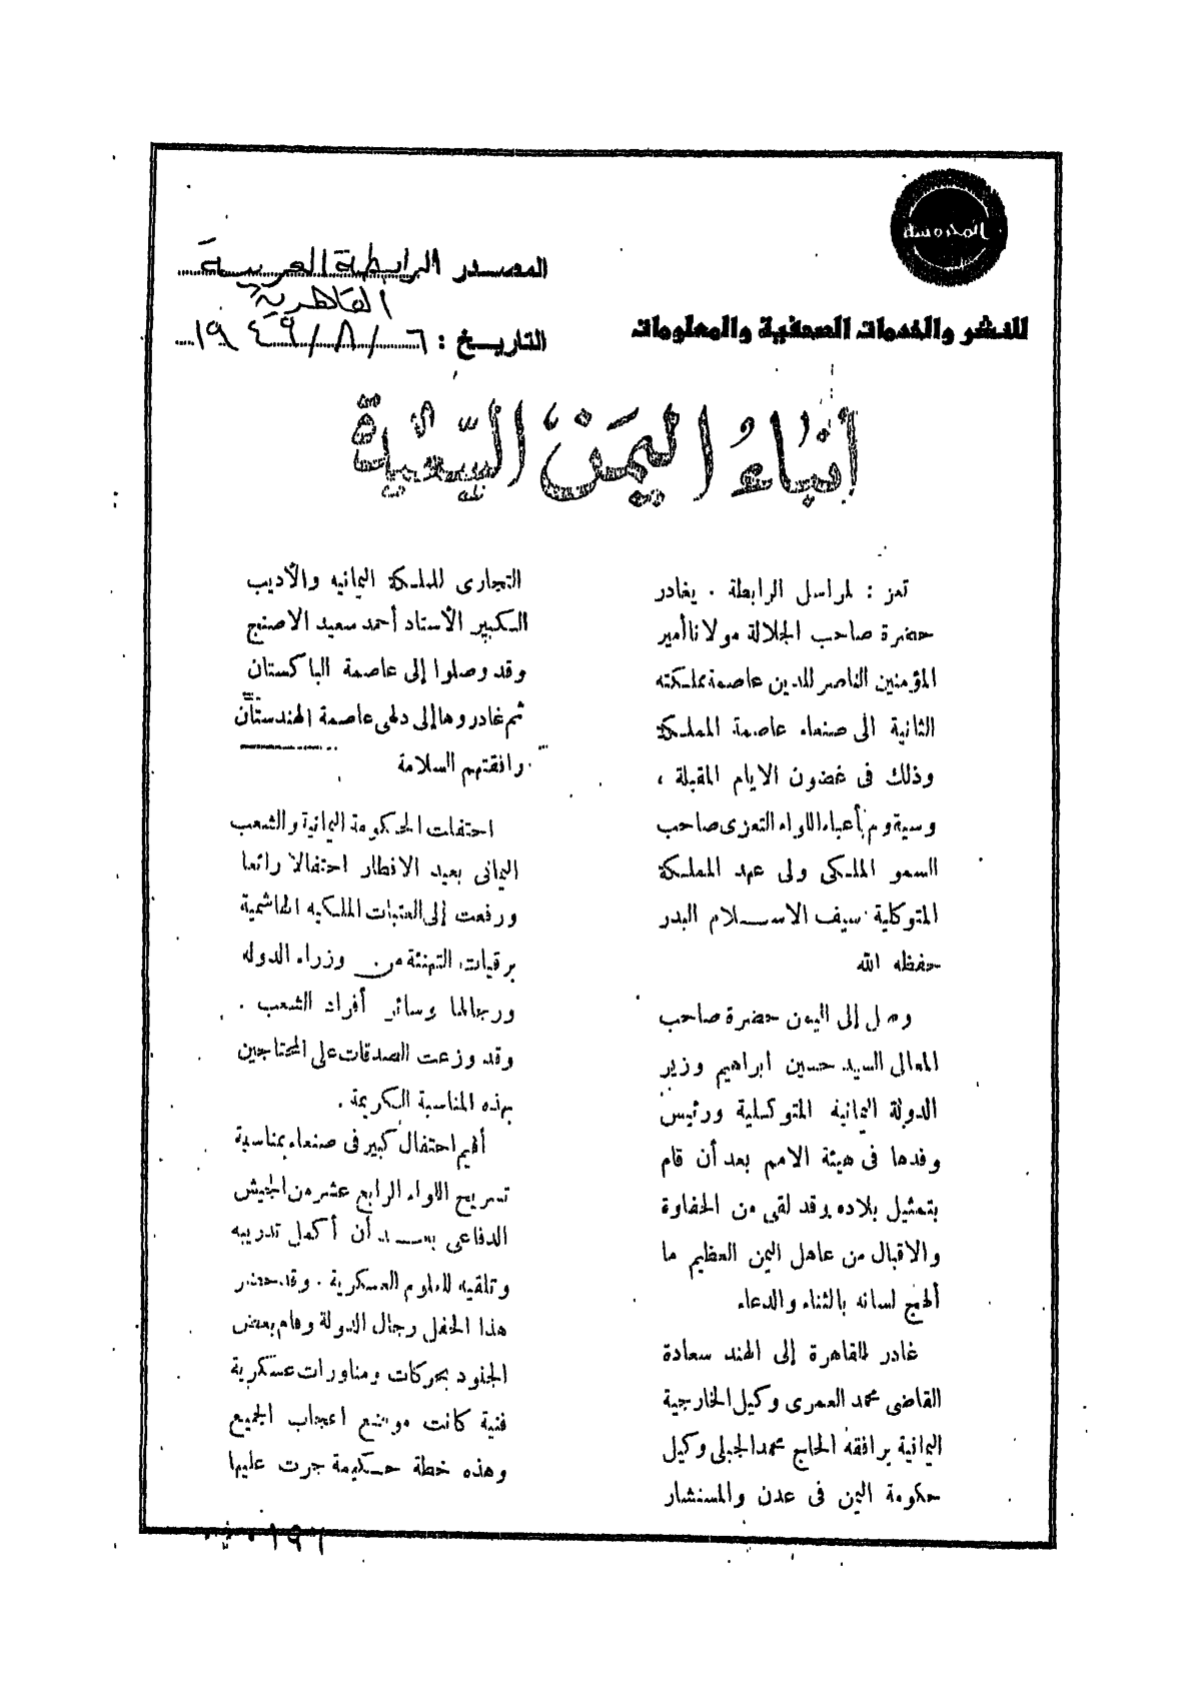 المصدر الرابطة العربية
القاهرية
للنشر والخدمات الصحفية والمعلومات
التاريخ : ٦ / ٨ / ١٩٤٩
أنباء اليمن السعيدة
تعز : لمراسل الرابطة . يغادر
حضرة صاحب الجلالة مولانا أمير
المؤمنين الناصر للدين عاصمة مملكته
الثانية الى صنعاء عاصمة المملكة
وذلك فى غضون الايام المقبلة ،
وسيقوم بأعباء اللواء التعزى صاحب
السمو الملكى ولى عهد المملكة
المتوكلية سيف الاسلام البدر
حفظه الله
وصل إلى اليمن حضرة صاحب
المعالى السيد حسين ابراهيم وزير
الدولة اليمانية المتوكلية ورئيس
وفدها فى هيئة الامم بعد أن قام
بتمثيل بلاده وقد لقى من الحفاوة
والاقبال من عاهل اليمن العظيم ما
ألهج لسانه بالثناء والدعاء
غادر القاهرة إلى الهند سعادة
القاضى محمد العمرى وكيل الخارجية
اليمانية يرافقه الحاج محمد الجبلى وكيل
حكومة اليمن فى عدن والمستشار
التجارى للمملكة اليمانيه والأديب
الكبير الأستاد أحمد سعيد الاصنج
وقد وصلوا إلى عاصمة الباكستان
ثم غادروها إلى دلهى عاصمة الهندستان
رافقتهم السلامة
احتفلت الحكومة اليمانية والشعب
اليمانى بعيد الافطار احتفالا رائعا
ورفعت إلى العتبات الملكيه الهاشمية
برقيات التهنئة من وزراء الدوله
ورجالها وسائر أفراد الشعب .
وقد وزعت الصدقات على المحتاجين
بهذه المناسبة الكريمة .
أقيم احتفال كبير فى صنعاء بمناسبة
تسريح اللواء الرابع عشر من الجيش
الدفاعى بعد أن أكمل تدريبه
وتلقيه للعلوم العسكرية . وقد حضر
هذا الحفل رجال الدولة وقام بعض
الجنود بحركات ومناورات عسكرية
فنية كانت موضع اعجاب الجميع
وهذه خطة حكيمة جرت عليها